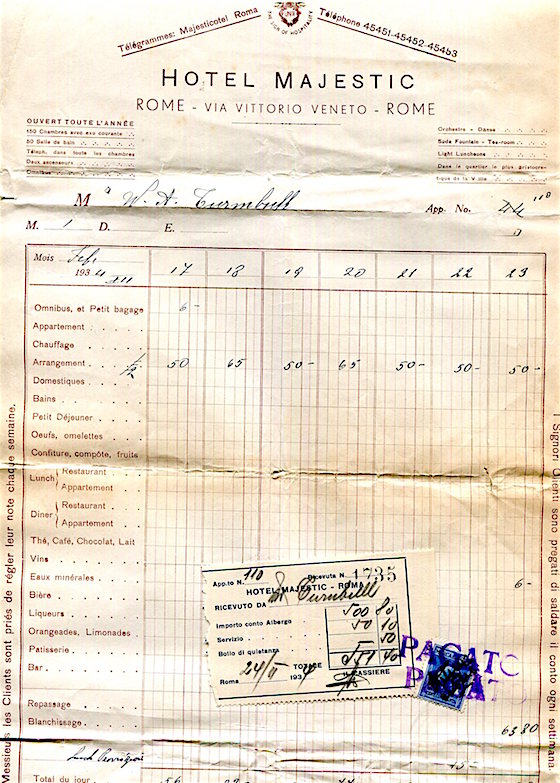 Télégrammes: Majesticotel Roma
THE SIGN OF HOSPITALITY
Téléphone 45451-45452-45463
HOTEL MAJESTIC
ROME - VIA VITTORIO VENETO - ROME
OUVERT TOUTE L'ANNÉE
150 Chambres avec eau courante
50 Salle de bain
Téleph. dans toute les chambres
Deux ascenseurs
Omnibus
Orchestre - Danse
Soda Fountain - Tea-room
Light Luncheons
Dans le quartier le plus aristocra-
tique de la Ville
M W. A. Turnbull App. No. 110
M. 1 D. E.
Mois Feb.
1934 XII 17 18 19 20 21 22 23
Omnibus, et Petit bagage 6 -
Appartement
Chauffage
Arrangement 1/2 50 65 50- 65 50- 50- 50-
Domestiques
Bains
Petit Déjeuner
Oeufs, omelettes
Confiture, compôte, fruits
Lunch Restaurant
Appartement
Diner Restaurant
Appartement
Thé, Café, Chocolat, Lait
Vins
Eaux minérales 6-
Bière
Liqueurs
Orangeades, Limonades
Patisserie
Bar
Repassage
Blanchissage 63 80
Total du jour 56
Messieurs les Clients sont priés de régler leur note chaque semaine.
I Signori Clienti sono pregati di saldare il conto ogni settimana
App.to N. 110 Ricevuta N. 1735
HOTEL MAJESTIC - ROMA
RICEVUTO DA Turnbull
Importo conto Albergo 500 80
Servizio 50 10
Bollo di quietanza 50
TOTALE 551 40
Roma 24/II 1934 IL CASSIERE
PAGATO
PAGATO